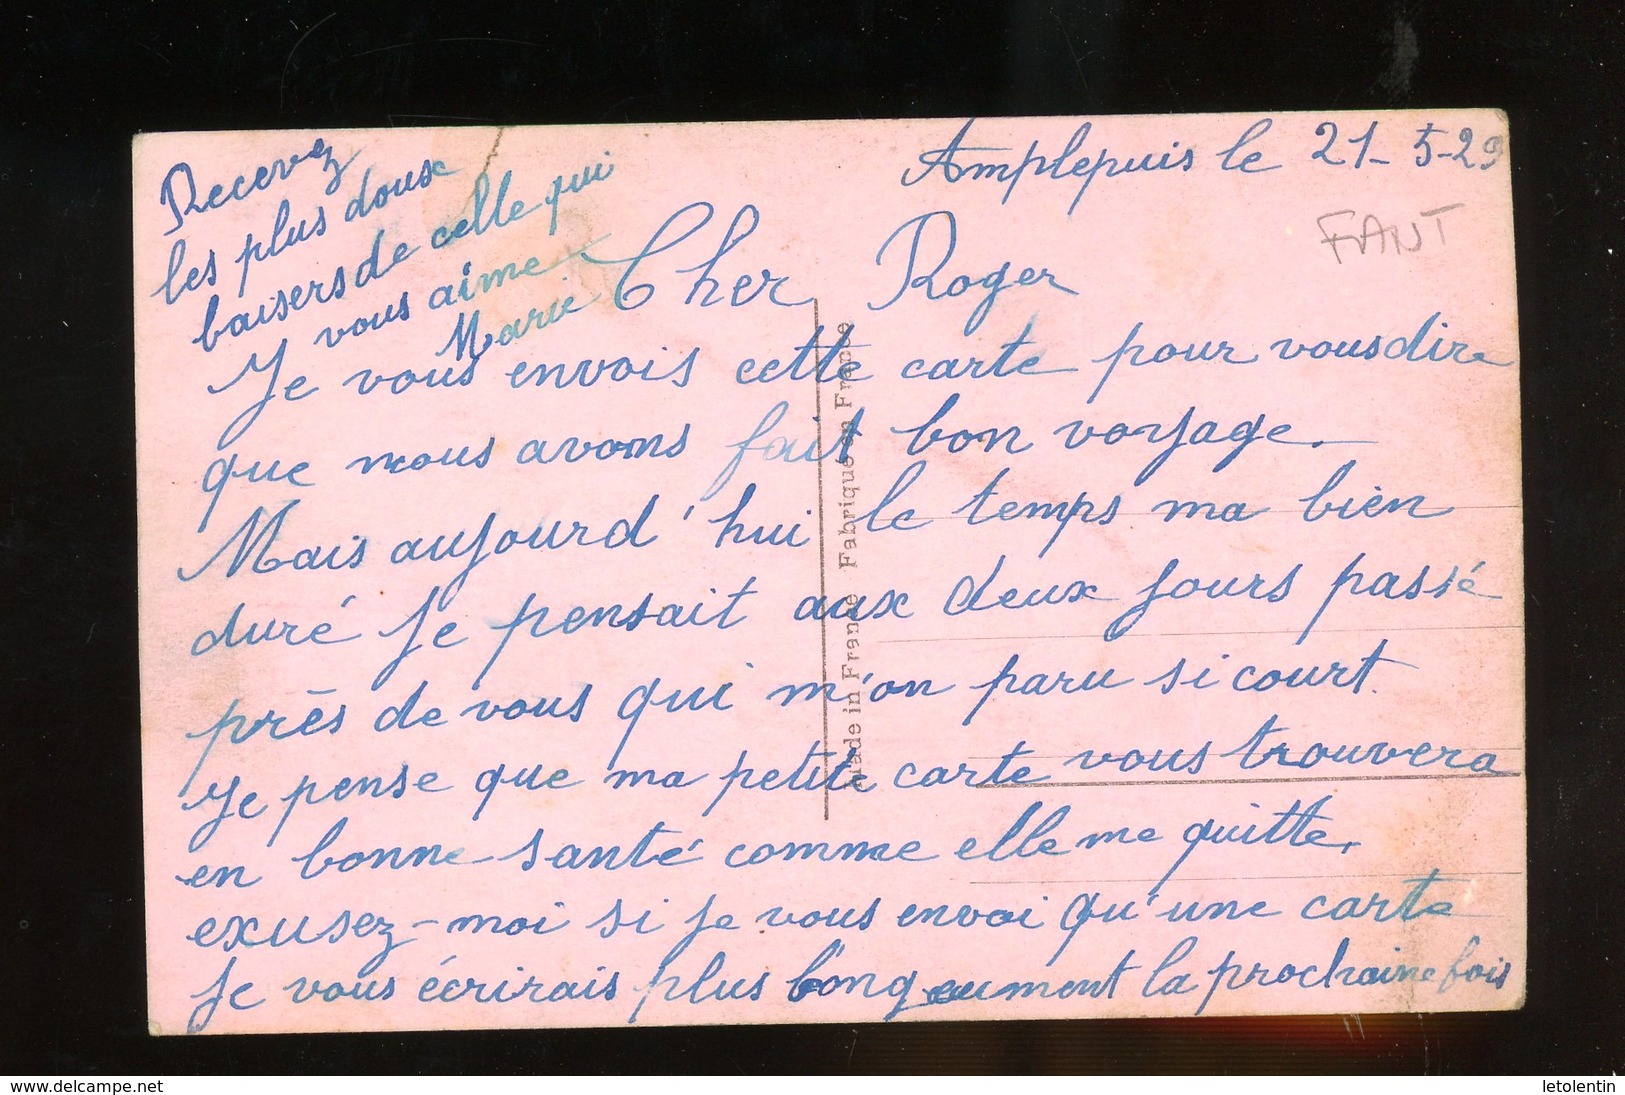 Amplepuis le 21-5-29
FANT
Cher Roger
Je vous envois cette carte pour vous dire
que nous avons fait bon voyage.
Mais aujourd'hui le temps ma bien
duré Je pensait aux deux Jours passé
près de vous qui m'on paru si court.
Je pense que ma petite carte vous trouvera
en bonne santé comme elle me quitte.
exusez-moi si Je vous envoi qu'une carte
Je vous écrirais plus longueument la prochaine fois
Recevez
les plus doux
baisers de celle qui
vous aime
Marie
Made in France Fabriqué en France
www.delcampe.net
letolentin